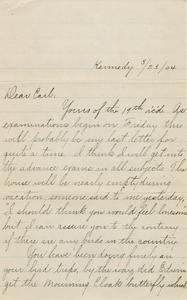 Kennedy 3/23/04
Dear Earl:
Yours of the 19th rcd. As
examinations begin on Friday this
will probably be my last letter for
quite a time. I think I will get into
the advance exams in all subjects. The
house will be nearly empty during
vacation, someone said to me yesterday,
I should think you would feel lonesome
but I can assure you to the contrary
if there are any birds in the country.
You have been doing finely on
your bird trips, by the way did
get the Mourning Cloak butterfly